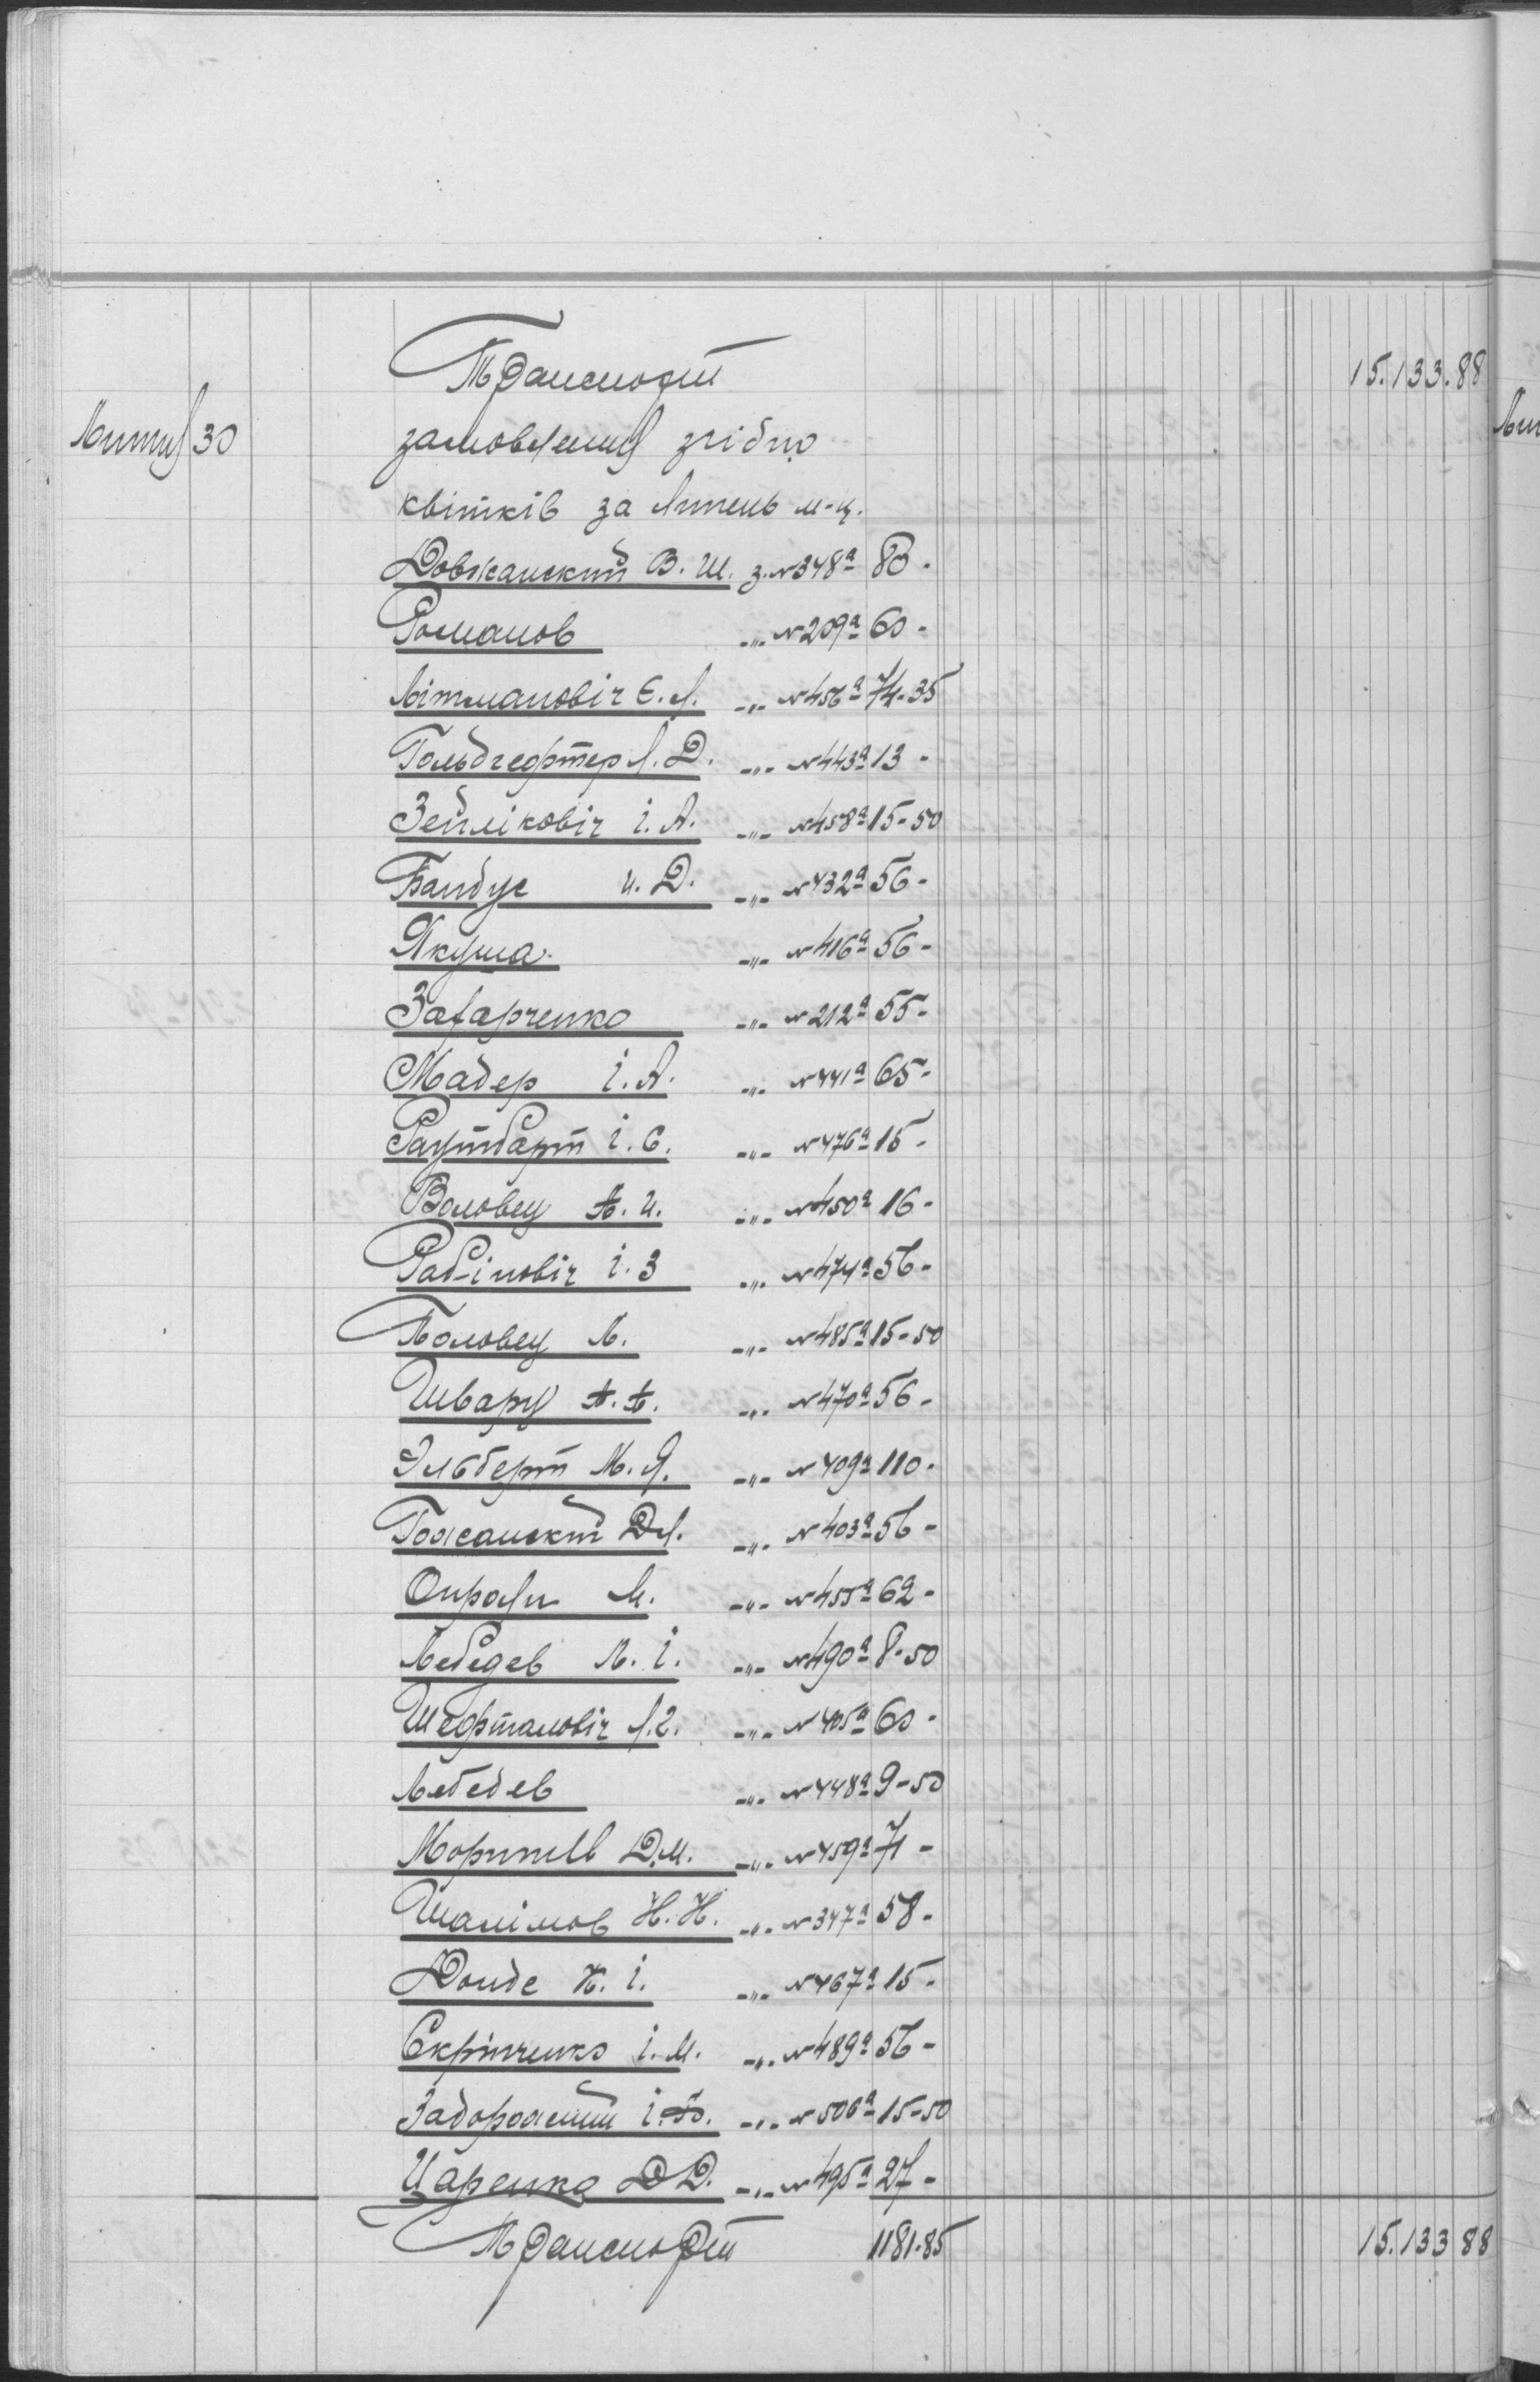 Транспорт 15.133.88
Липня 30 замовлення згідно
квітків за Липень м-ц.
Довжанский В. Ш. з. №348а 80.
Романов -„- №209а 60-
Літмановіч Є. Л. -„- №456а 74-35
Гольдгефтер Л. Д. -„- №443а 13-
Зейліковіч І. А. -„- №458а 15-50
Бандус И. Д. -„- №432а 56-
Якуша. -„- №416а 56-
Захарченко -„- №212а 55-
Мадер І. А. -„- №441а 65-
Раутбарт І. С. -„- №476а 15-
Воловец А. И. -„- №450а 16-
Рабіновіч І. З -„- №474а 56-
Половец Л. -„- №485а 15-50
Шварц А. А. -„- №470а 56-
Эльберт М. Я. -„- №409а 110-
Гожанский Д Л. -„- №403а 56-
М. -„- №455а 62-
Лебедев Л. І. -„- №490а 8-50
Шефтмановіч Л. -„- №405а 60-
Лебедев -„- №448а 9-50
Д. М. -„- №459а 71-
Шалімов Н. Н. -„- №347а 58-
Донде К. І. -„- №467а 15-
Скріпченко І. М. -„- №489а 56-
Задорожний І. -„- №506а 15-50
Царенко Д Д. -„- №495а 27-
Транспорт 1181.85 15.133 88